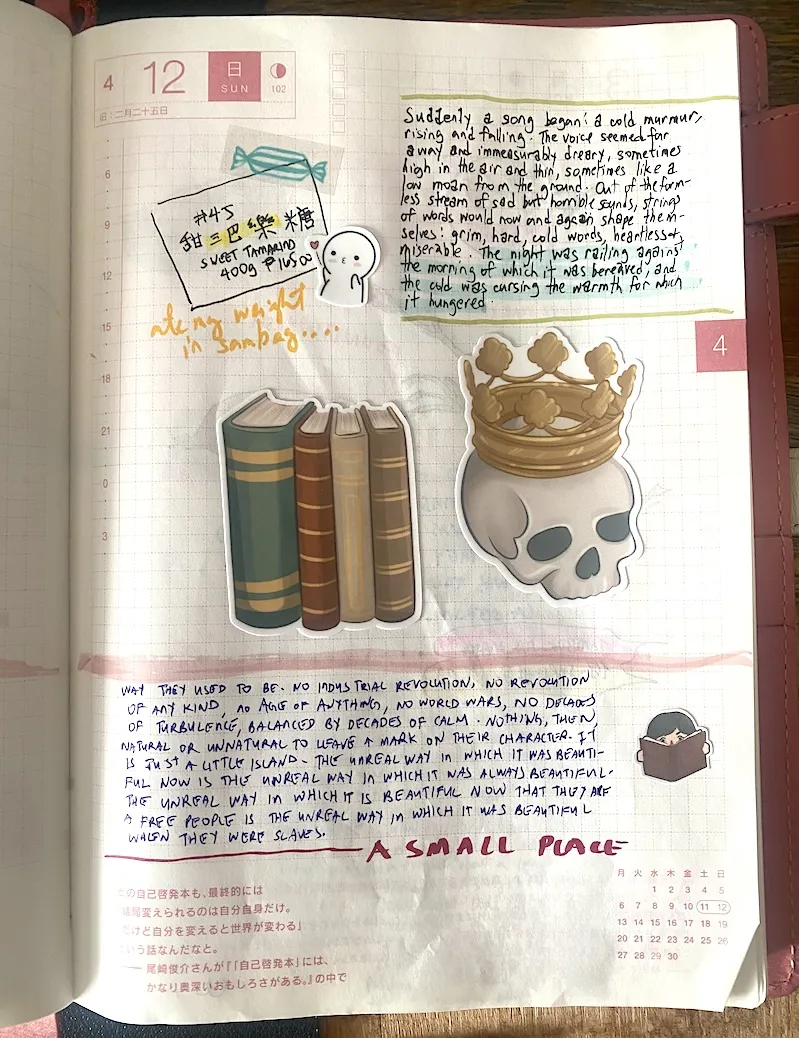 4 12 日 SUN 102
旧:二月二十五日
6
9
12
15
18
21
0
3
#45
甜三巴樂糖
SWEET TAMARIND
400g ₱165.00
ate my weight
in sambag....
Suddenly a song began: a cold murmur,
rising and falling. The voice seemed far
away and immeasurably dreary, sometimes
high in the air and thin, sometimes like a
low moan from the ground. Out of the form-
less stream of sad but horrible sounds, strings
of words would now and again shape them-
selves: grim, hard, cold words, heartless and
miserable. The night was railing against
the morning of which it was bereaved, and
the cold was cursing the warmth for which
it hungered.
4
WAY THEY USED TO BE. NO INDUSTRIAL REVOLUTION, NO REVOLUTION
OF ANY KIND, NO AGE OF ANYTHING, NO WORLD WARS, NO DECADES
OF TURBULENCE, BALANCED BY DECADES OF CALM. NOTHING, THEN,
NATURAL OR UNNATURAL TO LEAVE A MARK ON THEIR CHARACTER. IT
IS JUST A LITTLE ISLAND. THE UNREAL WAY IN WHICH IT WAS BEAUTI-
FUL NOW IS THE UNREAL WAY IN WHICH IT WAS ALWAYS BEAUTIFUL.
THE UNREAL WAY IN WHICH IT IS BEAUTIFUL NOW THAT THEY ARE
A FREE PEOPLE IS THE UNREAL WAY IN WHICH IT WAS BEAUTIFUL
WHEN THEY WERE SLAVES.
A SMALL PLACE
の自己啓発本も、最終的には
結局変えられるのは自分自身だけ。
だけど自分を変えると世界が変わる」
いう話なんだなと。
── 尾崎俊介さんが『「自己啓発本」には、
かなり奥深いおもしろさがある。』の中で
月 火 水 木 金 土 日
1 2 3 4 5
6 7 8 9 10 11 12
13 14 15 16 17 18 19
20 21 22 23 24 25 26
27 28 29 30